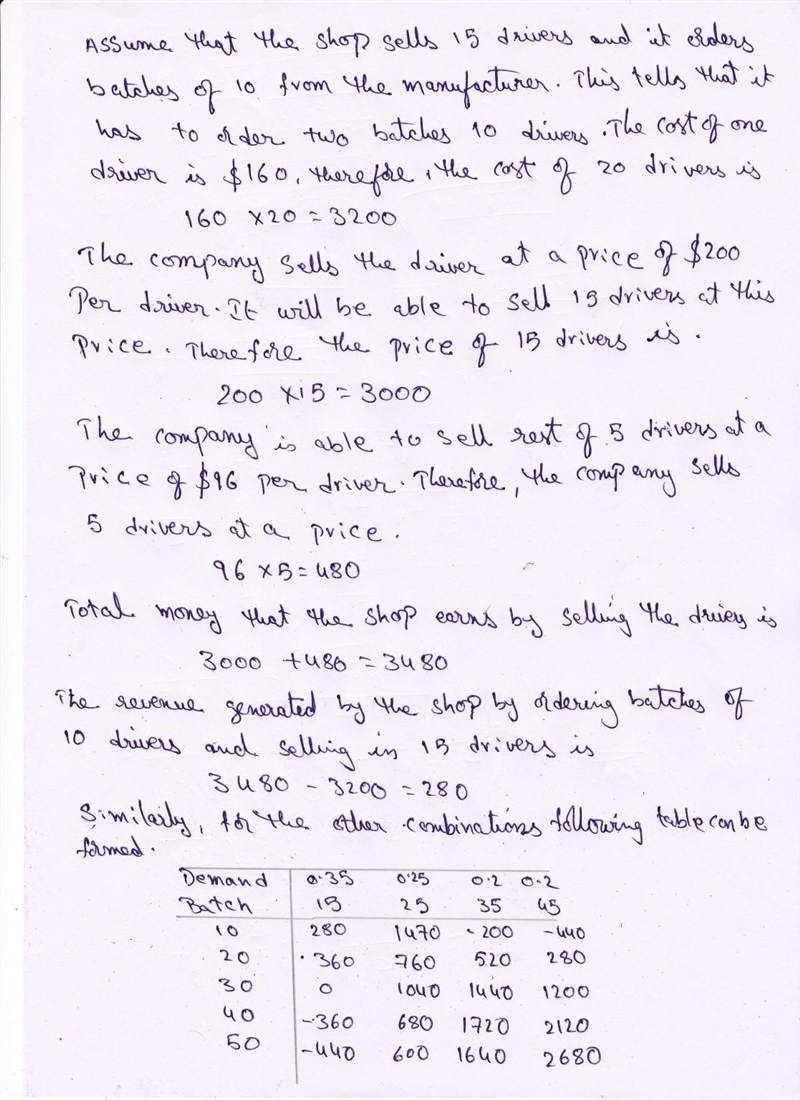 Assume that the shop sells 15 drivers and it orders
batches of 10 from the manufacturer. This tells that it
has to order two batches 10 drivers. The cost of one
driver is $160, therefore, the cost of 20 drivers is
160 × 20 = 3200
The company sells the driver at a price of $200
Per driver. It will be able to sell 15 drivers at this
Price. Therefore the price of 15 drivers is.
200 ×15 = 3000
The company is able to sell rest of 5 drivers at a
Price of $96 per driver. Therefore, the company sells
5 drivers at a price.
96 ×5 = 480
Total money that the shop earns by selling the drivers is
3000 +480 = 3480
The revenue generated by the shop by ordering batches of
10 drivers and selling in 15 drivers is
3480 - 3200 = 280
Similarly, for the other combinations following table can be
formed.
Demand 0.35 0.25 0.2 0.2
Batch 15 25 35 45
10 280 1470 -200 -440
20 .360 760 520 280
30 0 1040 1440 1200
40 -360 680 1720 2120
50 -440 600 1640 2680